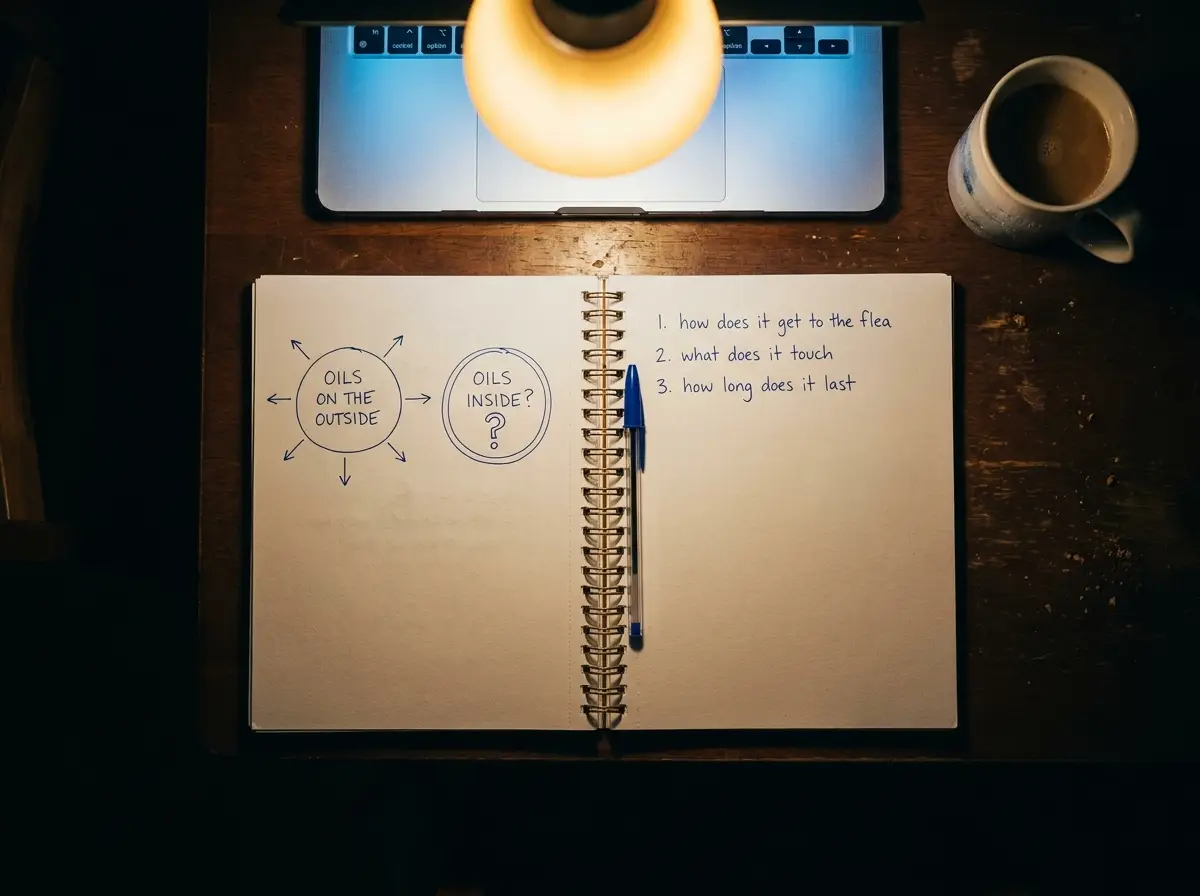 fn
control
option
option
OILS
ON THE
OUTSIDE
OILS
INSIDE?
?
1. how does it get to the flea
2. what does it touch
3. how long does it last